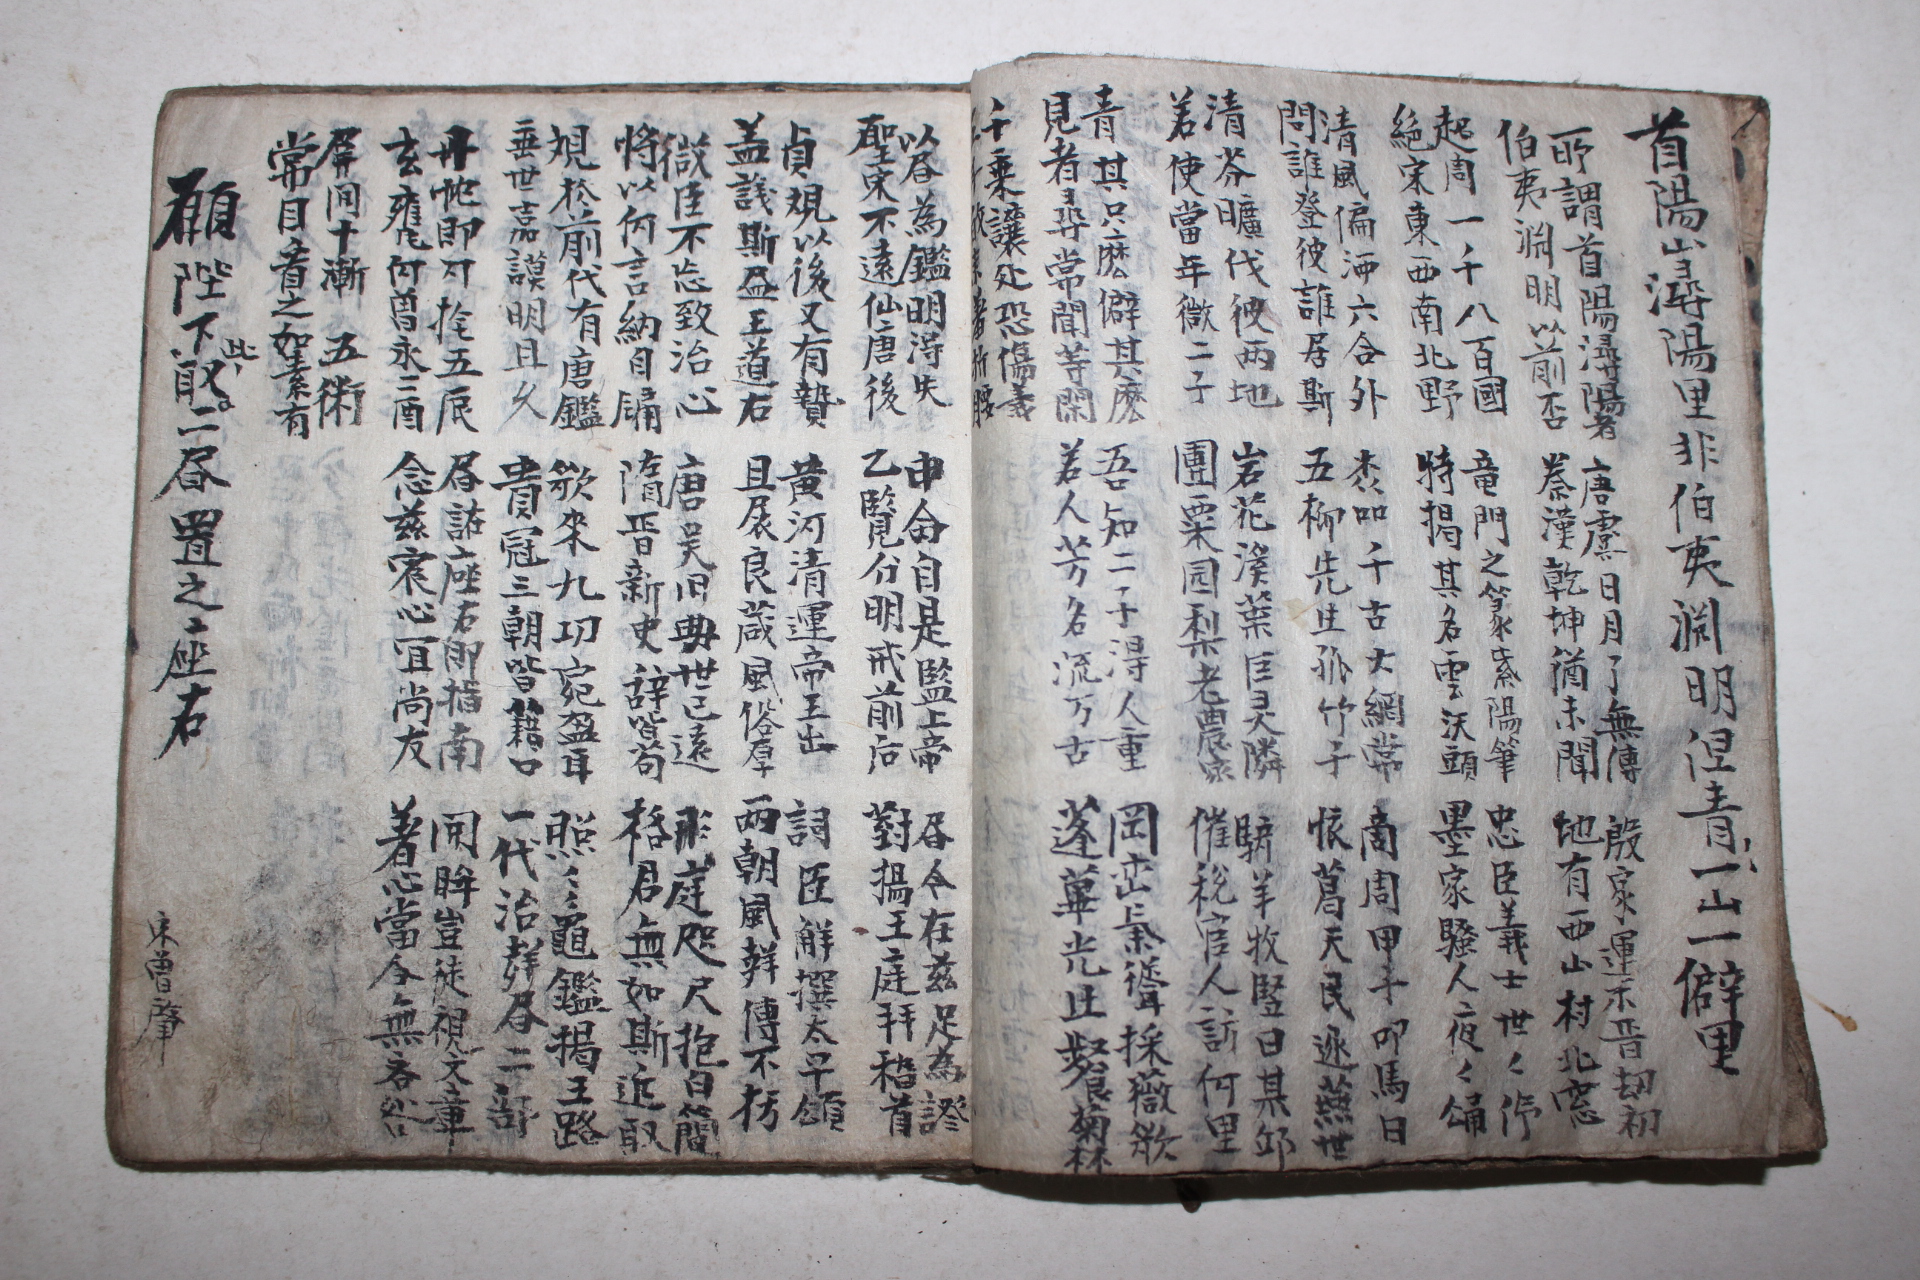 首陽山潯陽里非伯夷淵明涅青一山一僻里
所謂首陽潯陽者 唐虞日月了無傳 殷家運示晋劫初
伯夷淵明以前否 秦漢乾坤猶未聞 地有西山村北窓
起周一千八百國 竜門之篆紫陽筆 忠臣義士世〻停
絶宋東西南北野 特揭其名雲沃頭 墨家騷人夜〻誦
清風偏洒六合外 千古大綱常 商周甲子叩馬日
問誰登彼誰居斯 五柳先生孤竹子 恨葛天民逃世
清芬曠代彼兩地 岩花溪葉臣灵隣 騂羊牧竪日某邱
若使當年微二子 團栗园梨老農家 催税官人訪何里
青其只麽僻其麽 吾知二子得人重 岡峦採薇欲
見者尋常聞等閑 若人芳名流万古 蓬蓽光止餐菊
千乘讓处恐傷義
折腰
以唐為鑑明得失 申命自是監上帝 唐令在玆足為證
聖宋不遠仙唐後 乙覽分明戒前后 對揚王庭拜稽首
貞規以後又有贊 黄河清運帝王出 詞臣解撰太平頌
盖斯盈王道右 且展良箴風俗厚 兩朝風傳不朽
微臣不忘致治心 唐吴旧典世已遠 彤庭咫尺抱白簡
將以何言納自牖 隋晋新史辞皆苟 格君無如斯近取
規於前代有唐鑑 欲來九切宛盈耳 照〻鑑揭王路
垂世嘉謨明且久 貴冠三朝皆籍口 一代治唐二部
丹地即可捨五辰 唐誌座右即指南 開眸豈徒視文章
玄何曾永二酉 念玆宸心宜尚友 著心當令無吝
屏間十漸 五術
常目着之如素有
願陛下取此二唐置之座右
宋曾肇